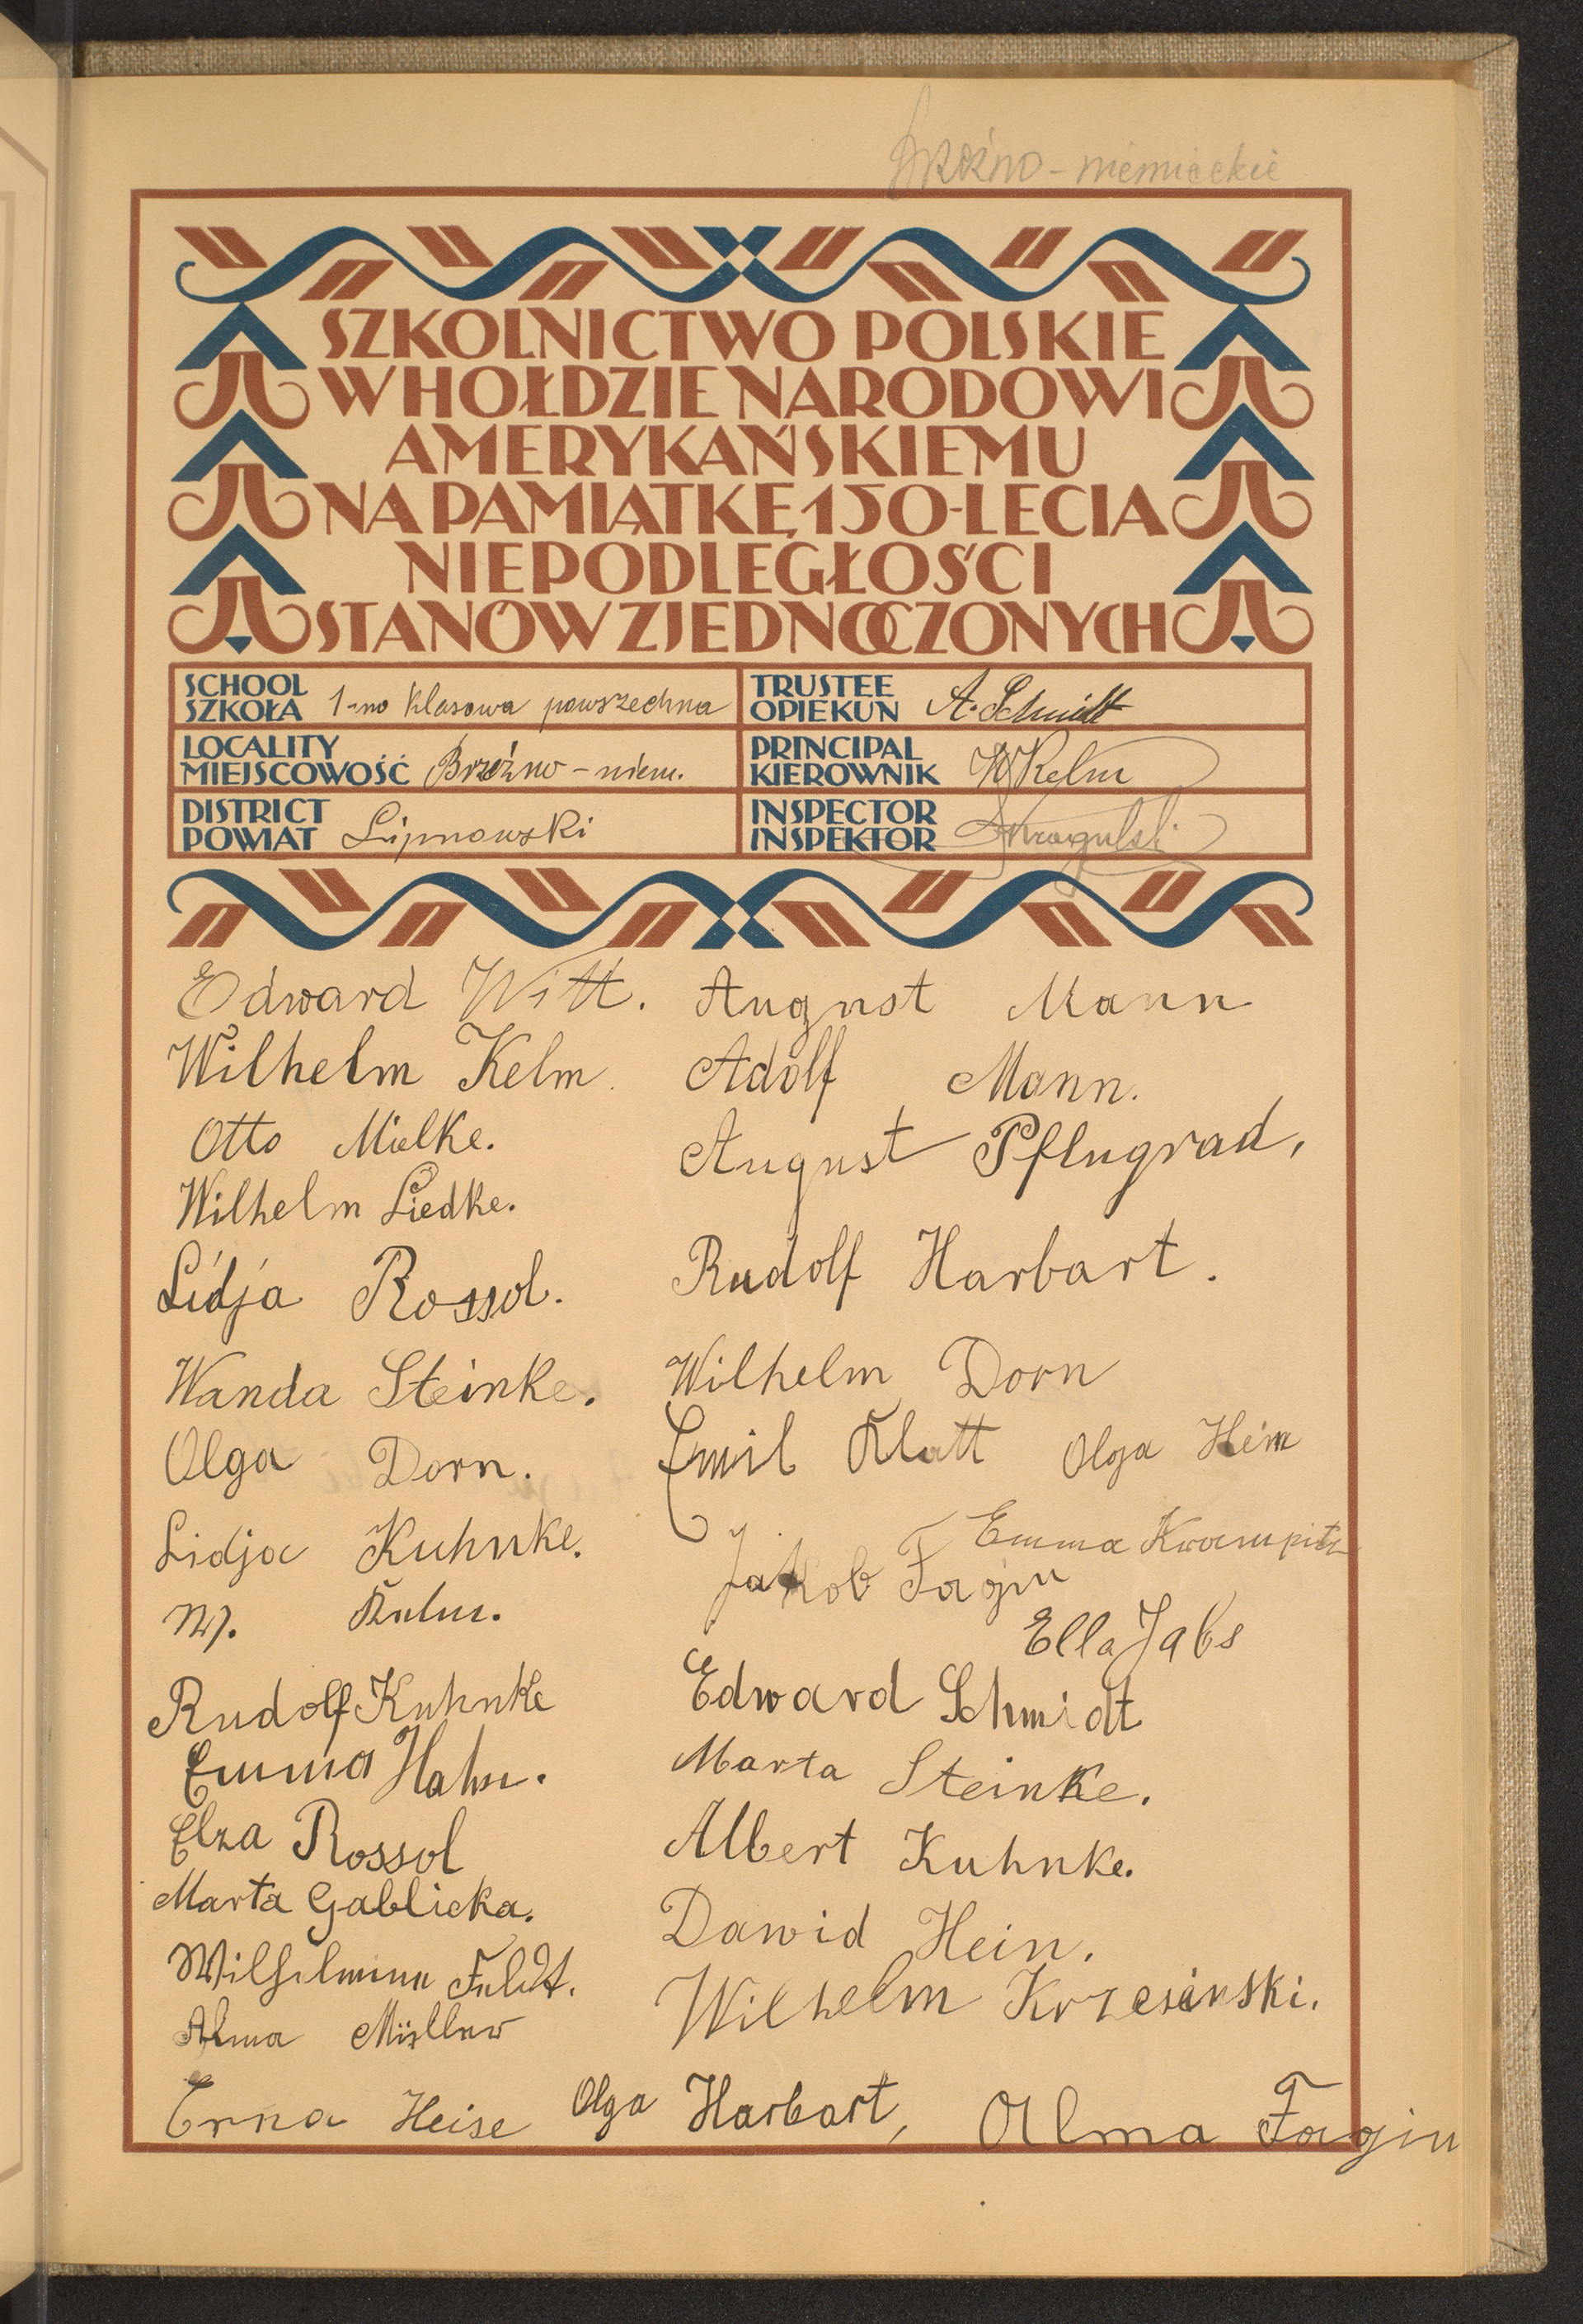 Brzeźno - niemieckie
SZKOLNICTWO POLSKIE
W HOŁDZIE NARODOWI
AMERYKAŃSKIEMU
NA PAMIĄTKĘ 150-LECIA
NIEPODLEGŁOŚCI
STANÓW ZJEDNOCZONYCH
SCHOOL
SZKOŁA 1-no klasowa powszechna
TRUSTEE
OPIEKUN A. Schmidt
LOCALITY
MIEJSCOWOŚĆ Brzeźno - niem.
PRINCIPAL
KIEROWNIK W Kelm
DISTRICT
POWIAT Lipnowski
INSPECTOR
INSPEKTOR
Edward Witt.
Wilhelm Kelm.
Otto Mielke.
Wilhelm Liedke.
Lidja Rossol.
Wanda Steinke.
Olga Dorn.
Lidja Kuhnke.
W.
Rudolf Kuhnke
Emma Hahn.
Elza Rossol
Marta Gablicka.
Alma Müller
Erna Heise
August Mann
Adolf Mann.
August Pflugrad,
Rudolf Harbart.
Wilhelm Dorn
Emil Klatt Olga Hein
Emma
Jakob Fagin
Ella Jabs
Edward Schmidt
Marta Steinke.
Albert Kuhnke.
Dawid Hein.
Wilhelm Krzesinski.
Olga Harbart, Alma Fagin